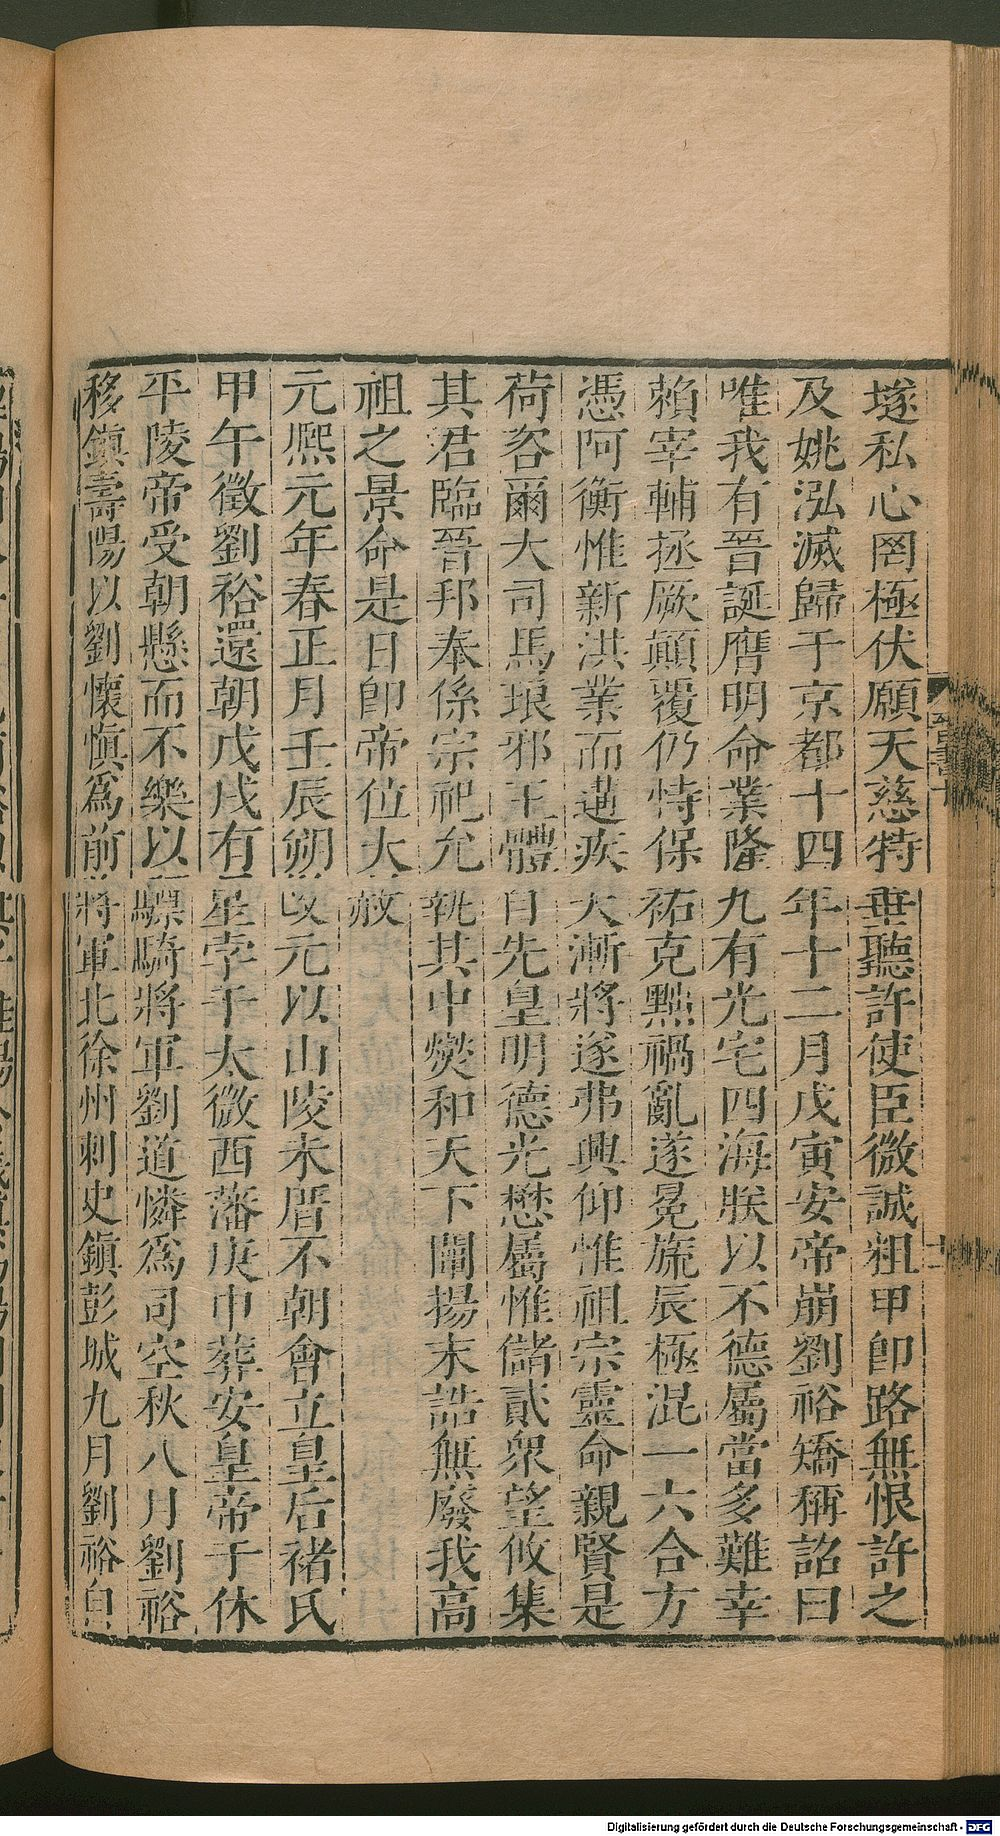 遂私心罔極伏願天慈特垂聽許使臣微誠粗申卽路無恨許之
及姚泓滅歸于京都十四年十二月戊寅安帝崩劉裕矯稱詔曰
唯我有晉誕膺明命業隆九有光宅四海朕以不德屬當多難幸
賴宰輔拯厥顛覆仍恃保祐克黜禍亂遂冕旒辰極混一六合方
憑阿衡惟新洪業而遘疾大漸將遂弗興仰惟祖宗靈命親賢是
荷咨爾大司馬琅邪王體自先皇明德光懋屬惟儲貳衆望攸集
其君臨晉邦奉係宗祀允執其中燮和天下闡揚末誥無廢我高
祖之景命是日卽帝位大赦
元熈元年春正月壬辰朔改元以山陵未厝不朝會立皇后褚氏
甲午徵劉裕還朝戊戌有星孛于太微西藩庚申葬安皇帝于休
平陵帝受朝懸而不樂以驃騎將軍劉道憐爲司空秋八月劉裕
移鎮壽陽以劉懷愼爲前將軍北徐州刺史鎮彭城九月劉裕自
晉書十
十一
Digitalisierung gefördert durch die Deutsche Forschungsgemeinschaft - DFG